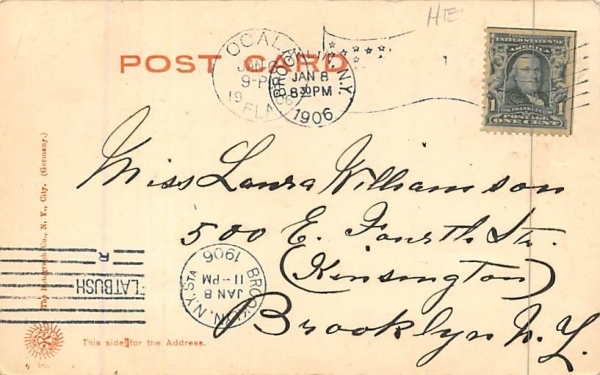 HE
POST CARD
OCALA
JAN 6
9-P
1906
FLA
BROOKLYN, N.Y.
JAN 8
8 30 PM
1906
UNITED STATES OF
AMERICA
FRANKLIN
POSTAGE
1 ONE CENT 1
Miss Laura Williamson
500 E. Fourth St.
(Kensington)
Brooklyn N.Y.
BROOKLYN, N.Y. STA
JAN 8
11-PM
1906
FLATBUSH
R
Co., N. Y., City. (Germany.)
This side for the Address.